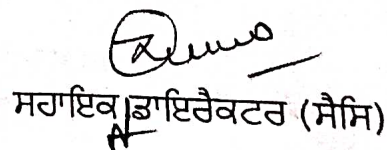 ਸਹਾਇਕ ਡਾਇਰੈਕਟਰ (ਸੈਸਿ)